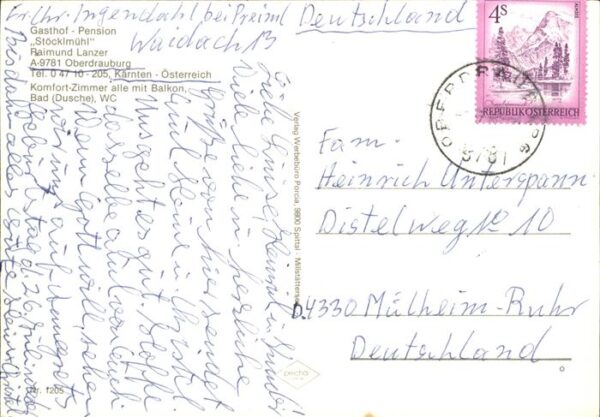 Fr. Chr. Ingendahl bei Preiml Deutschland
Waidach 13
Gasthof - Pension
"Stöcklmühl"
Raimund Lanzer
A-9781 Oberdrauburg
Tel. 0 47 10 - 205, Kärnten - Österreich
Komfort-Zimmer alle mit Balkon,
Bad (Dusche), WC
Liebe Luise, Heinrich u. Kinder
Viele liebe u. herzliche
Grüße von hier sendet
Christel
Uns geht es gut. hoffe
dasselbe auch von Euch
Wenn Gott will, sehen
wir uns auf
Geburtstag d. 26. Juli
Bis dahin alles Gute
Nr. 1205
Verlag Werbebüro Porcia, 9800 Spittal Millstättersee
4S
REPUBLIK ÖSTERREICH
OBERDRAUBURG
9781
Fam.
Heinrich Unterspann
Distelweg 10
D.4330 Mülheim-Ruhr
Deutschland